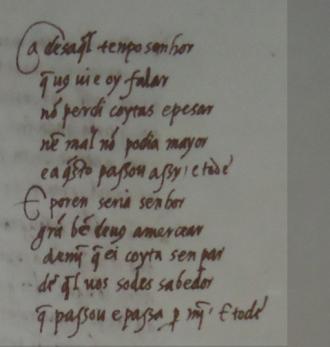 Ca desaql̃ tenpo senhor
q̃ uꝯ ui e oy falar
nõ perdi coytas e pesar
nẽ mal nõ podia mayor
e aq̃sto passou assy. E todẽ
E poren seria senhor
grã bẽ deuꝯ amercear
demĩ q̃ ei coyta sen par
de q̃l uos sodes sabedor
q̃ passou e passa p mĩ. E todẽ